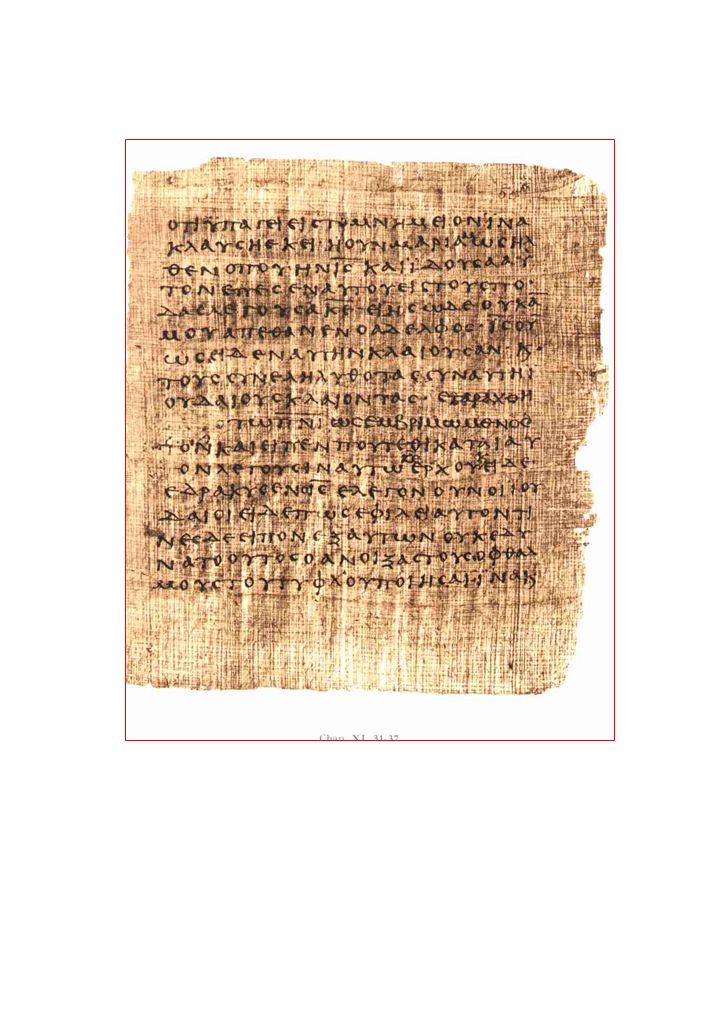 ΟΤΙΫΠΑΓΕΙΕΙϹΤΟΜΝΗΜΕΙΟΝΪΝΑ
ΚΛΑΥϹΗΕΚΕΙ·ΗΟΥΝΜΑΡΙΑΩϹΗΛ
ΘΕΝΟΠΟΥΗΝΙ̅Ϲ̅ΚΑΙΪΔΟΥϹΑΑΥ
ΤΟΝΕΠΕϹΕΝΑΥΤΟΥΕΙϹΤΟΥϹΠΟ·
ΔΑϹΛΕΓΟΥϹΑΚ̅Ε̅ΕΙΗϹΩΔΕΟΥΚΑ
ΜΟΥΑΠΕΘΑΝΕΝΟΑΔΕΛΦΟϹ·Ι̅Ϲ̅ΟΥ̅
ΩϹΕΙΔΕΝΑΥΤΗΝΚΛΑΙΟΥϹΑΝΚ·
ΤΟΥϹϹΥΝΕΛΗΛΥΘΟΤΑϹϹΥΝΑΥΤΗΙ
ΟΥΔΑΙΟΥϹΚΛΑΙΟΝΤΑϹ·ΕΤΑΡΑΧΘΗ
ΤΩΠ̅Ν̅Ι̅ΩϹΕΜΒΡΙΜΩΜΕΝΟϹ
ΟΝΚΑΙΕΙΠΕΝΠΟΥΤΕΘΙΚΑΤΑΙΑΥ
ΟΝΛΕΓΟΥϹΙΝΑΥΤΩΚ̅Ε̅ΕΡΧΟΥΚΕΙΔΕ
ΕΔΡΑΚΥϹΕΝΟΙ̅Ϲ̅ΕΛΕΓΟΝΟΥΝΟΙΙΟΥ
ΔΑΙΟΙΕΙΔΕΠΩϹΕΦΙΛΕΙΑΥΤΟΝΤΙ
ΝΕϹΔΕΕΙΠΟΝΕΞΑΥΤΩΝΟΥΚΕΔΥ
ΝΑΤΟΟΥΤΟϹΟΑΝΟΙΞΑϹΤΟΥϹΟΦΘΑΛ
ΜΟΥϹΤΟΥΤΥΦΛΟΥΠΟΙΗϹΑΙ·ΙΝΑΚ
Chap. XI, 31-37